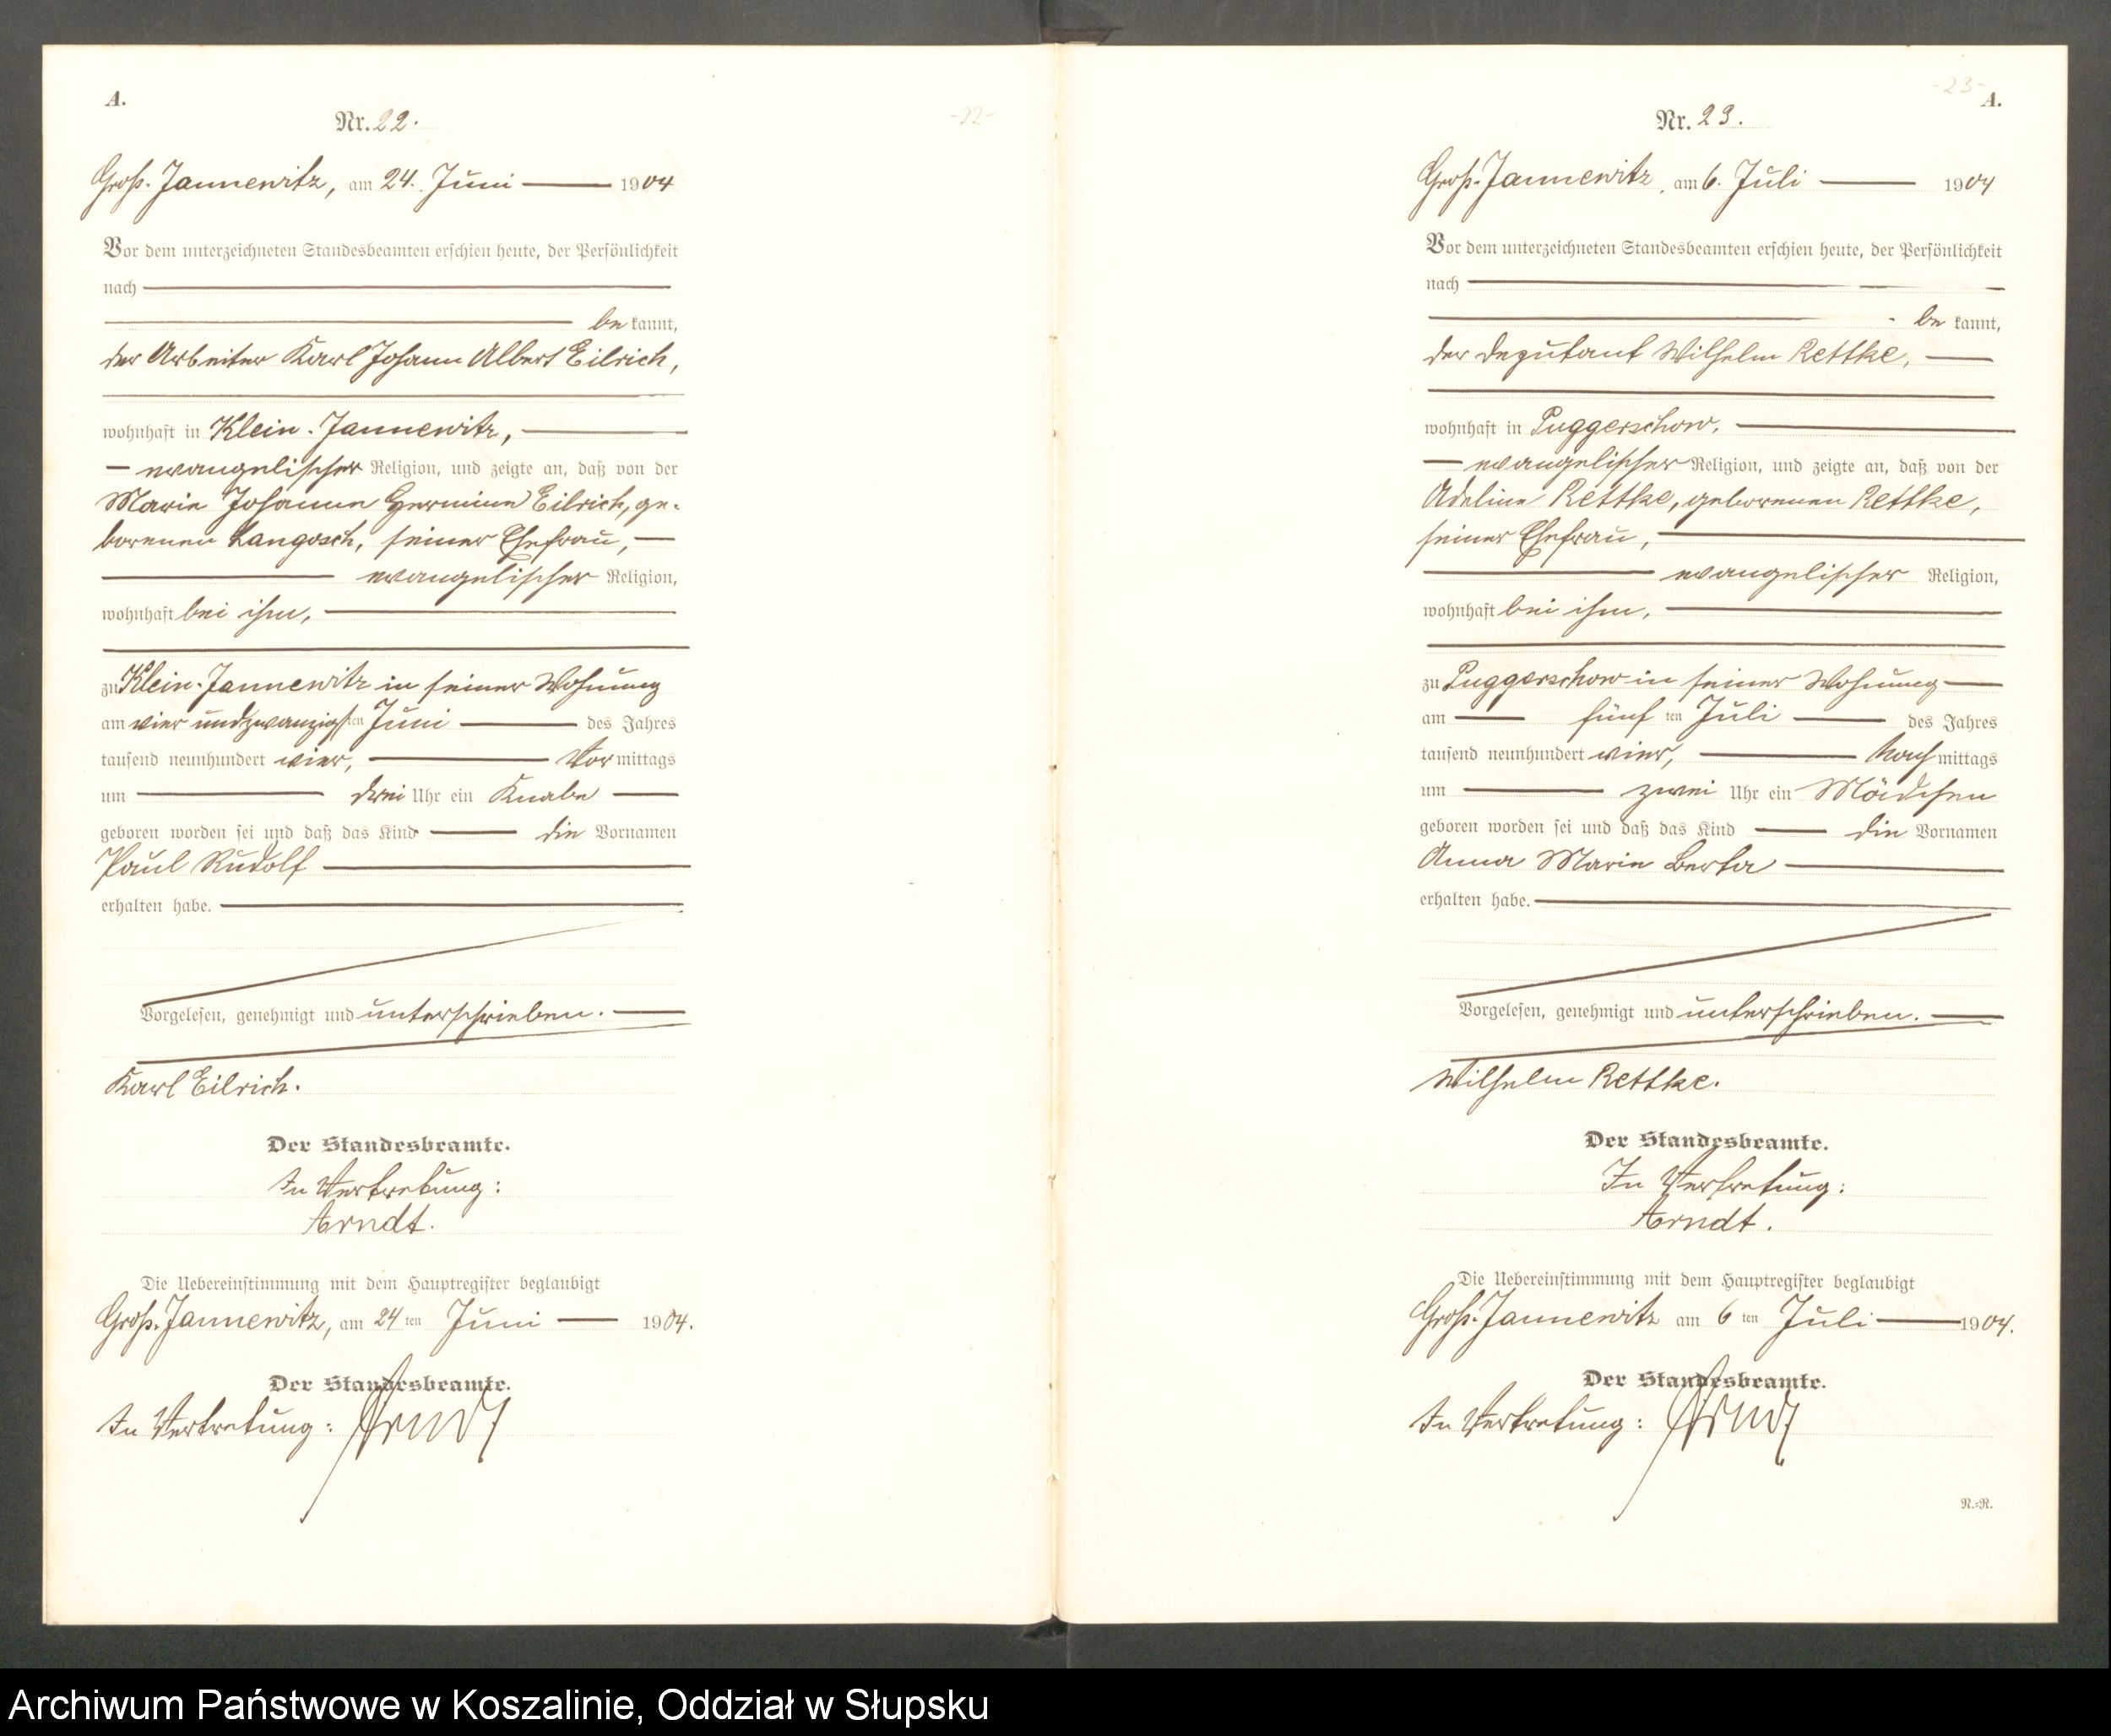 A.
Nr. 22.
-22-
Groß-Jannewitz, am 24. Juni 1904
Vor dem unterzeichneten Standesbeamten erschien heute, der Persönlichkeit
nach
be kannt,
der Arbeiter Karl Johann Albert Eilrich,
wohnhaft in Klein-Jannewitz,
evangelischer Religion, und zeigte an, daß von der
Marie Johanne Hermine Eilrich, ge-
borenen Langosch, seiner Ehefrau,
evangelischer Religion,
wohnhaft bei ihm,
zu Klein-Jannewitz in seiner Wohnung
am vier und zwanzigsten Juni des Jahres
tausend neunhundert vier, Vormittags
um drei Uhr ein Knabe
geboren worden sei und daß das Kind die Vornamen
Paul Rudolf
erhalten habe.
Vorgelesen, genehmigt und unterschrieben.
Karl Eilrich.
Der Standesbeamte.
In Vertretung:
Arndt.
Die Uebereinstimmung mit dem Hauptregister beglaubigt
Groß-Jannewitz, am 24 ten Juni 1904.
Der Standesbeamte.
In Vertretung: Arndt
-23-
A.
Nr. 23.
Groß-Jannewitz, am 6. Juli 1904
Vor dem unterzeichneten Standesbeamten erschien heute, der Persönlichkeit
nach
be kannt,
der Deputant Wilhelm Rettke,
wohnhaft in Puggerschow,
evangelischer Religion, und zeigte an, daß von der
Adeline Rettke, geborenen Rettke,
seiner Ehefrau,
evangelischer Religion,
wohnhaft bei ihm,
zu Puggerschow in seiner Wohnung
am fünf ten Juli des Jahres
tausend neunhundert vier, Nachmittags
um zwei Uhr ein Mädchen
geboren worden sei und daß das Kind die Vornamen
Anna Marie Berta
erhalten habe.
Vorgelesen, genehmigt und unterschrieben.
Wilhelm Rettke.
Der Standesbeamte.
In Vertretung:
Arndt.
Die Uebereinstimmung mit dem Hauptregister beglaubigt
Groß-Jannewitz am 6 ten Juli 1904.
Der Standesbeamte.
In Vertretung: Arndt
N.=R.
Archiwum Państwowe w Koszalinie, Oddział w Słupsku